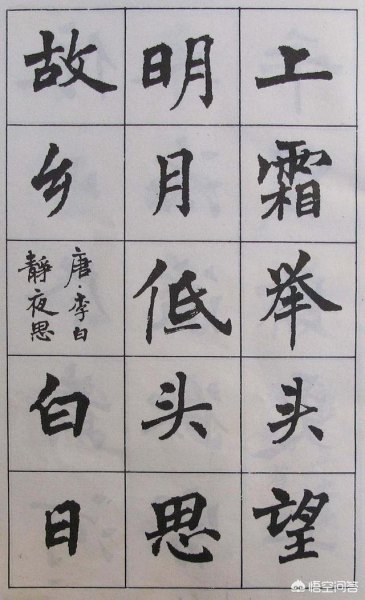 上霜举头望
明月低头思
故乡
唐·李白
静夜思
白日
悟空问答